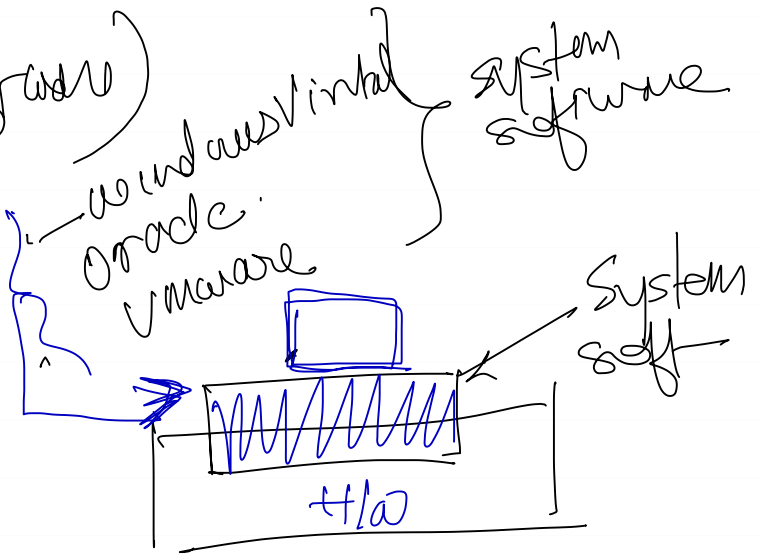 windows Virtual
oracle
vmware
system
software
System
soft
H/w